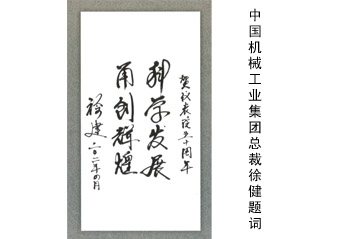 中国机械工业集团总裁徐健题词
贺仪表院五十周年
科学发展
再创辉煌
徐建
二〇一一年四月